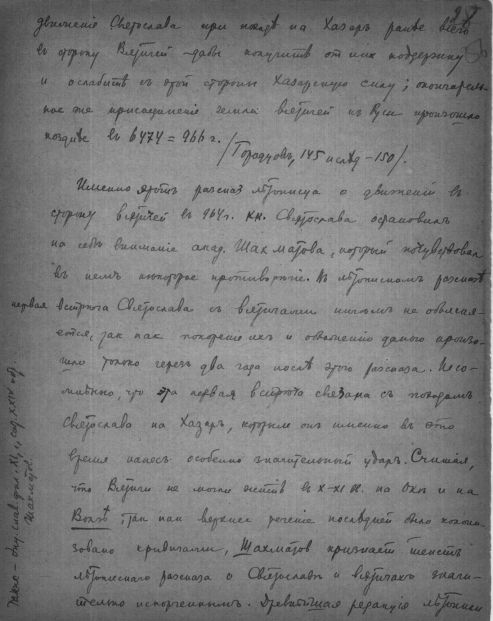 движенiе Святослава при походѣ на Хазаръ ранѣе всего
въ сторону Вятичей - дабы получить от них поддержку
и ослабить съ этой стороны Хазарскую силу; окончатель-
ное же присоединенiе земли вятичей къ Руси произошло
позднѣе въ 6474 = 966 г.
/Городцовъ, 145 и слѣд - 150/.
Именно этотъ рассказ лѣтописца о движенiи въ
сторону вятичей въ 964 г. кн. Святослава остановилъ
на себѣ вниманiе акад. Шахматова, который почувствовал
въ немъ некоторое противорѣчiе. Въ лѣтописномъ разсказѣ
первая встрѣча Святослава съ вятичами ничѣмъ не объясня-
ется, так как покоренiе их и обложенiе данью произо-
шло только черезъ два года послѣ этого рассказа. Несо-
мнѣнно, что эта первая встрѣча связана съ походомъ
Святослава на Хазаръ, которымъ онъ именно въ это
время нанесъ особенно значительный ударъ. Считая,
что Вятичи не могли жить въ X-XI в. на Окѣ и на
Волгѣ, так как верхнее теченiе послѣдней было колони-
зовано кривичами, Шахматов признает текстъ
лѣтописнаго рассказа о Святославѣ и вятичахъ значи-
тельно испорченнымъ. Древнѣйшая редакцiя лѣтописи